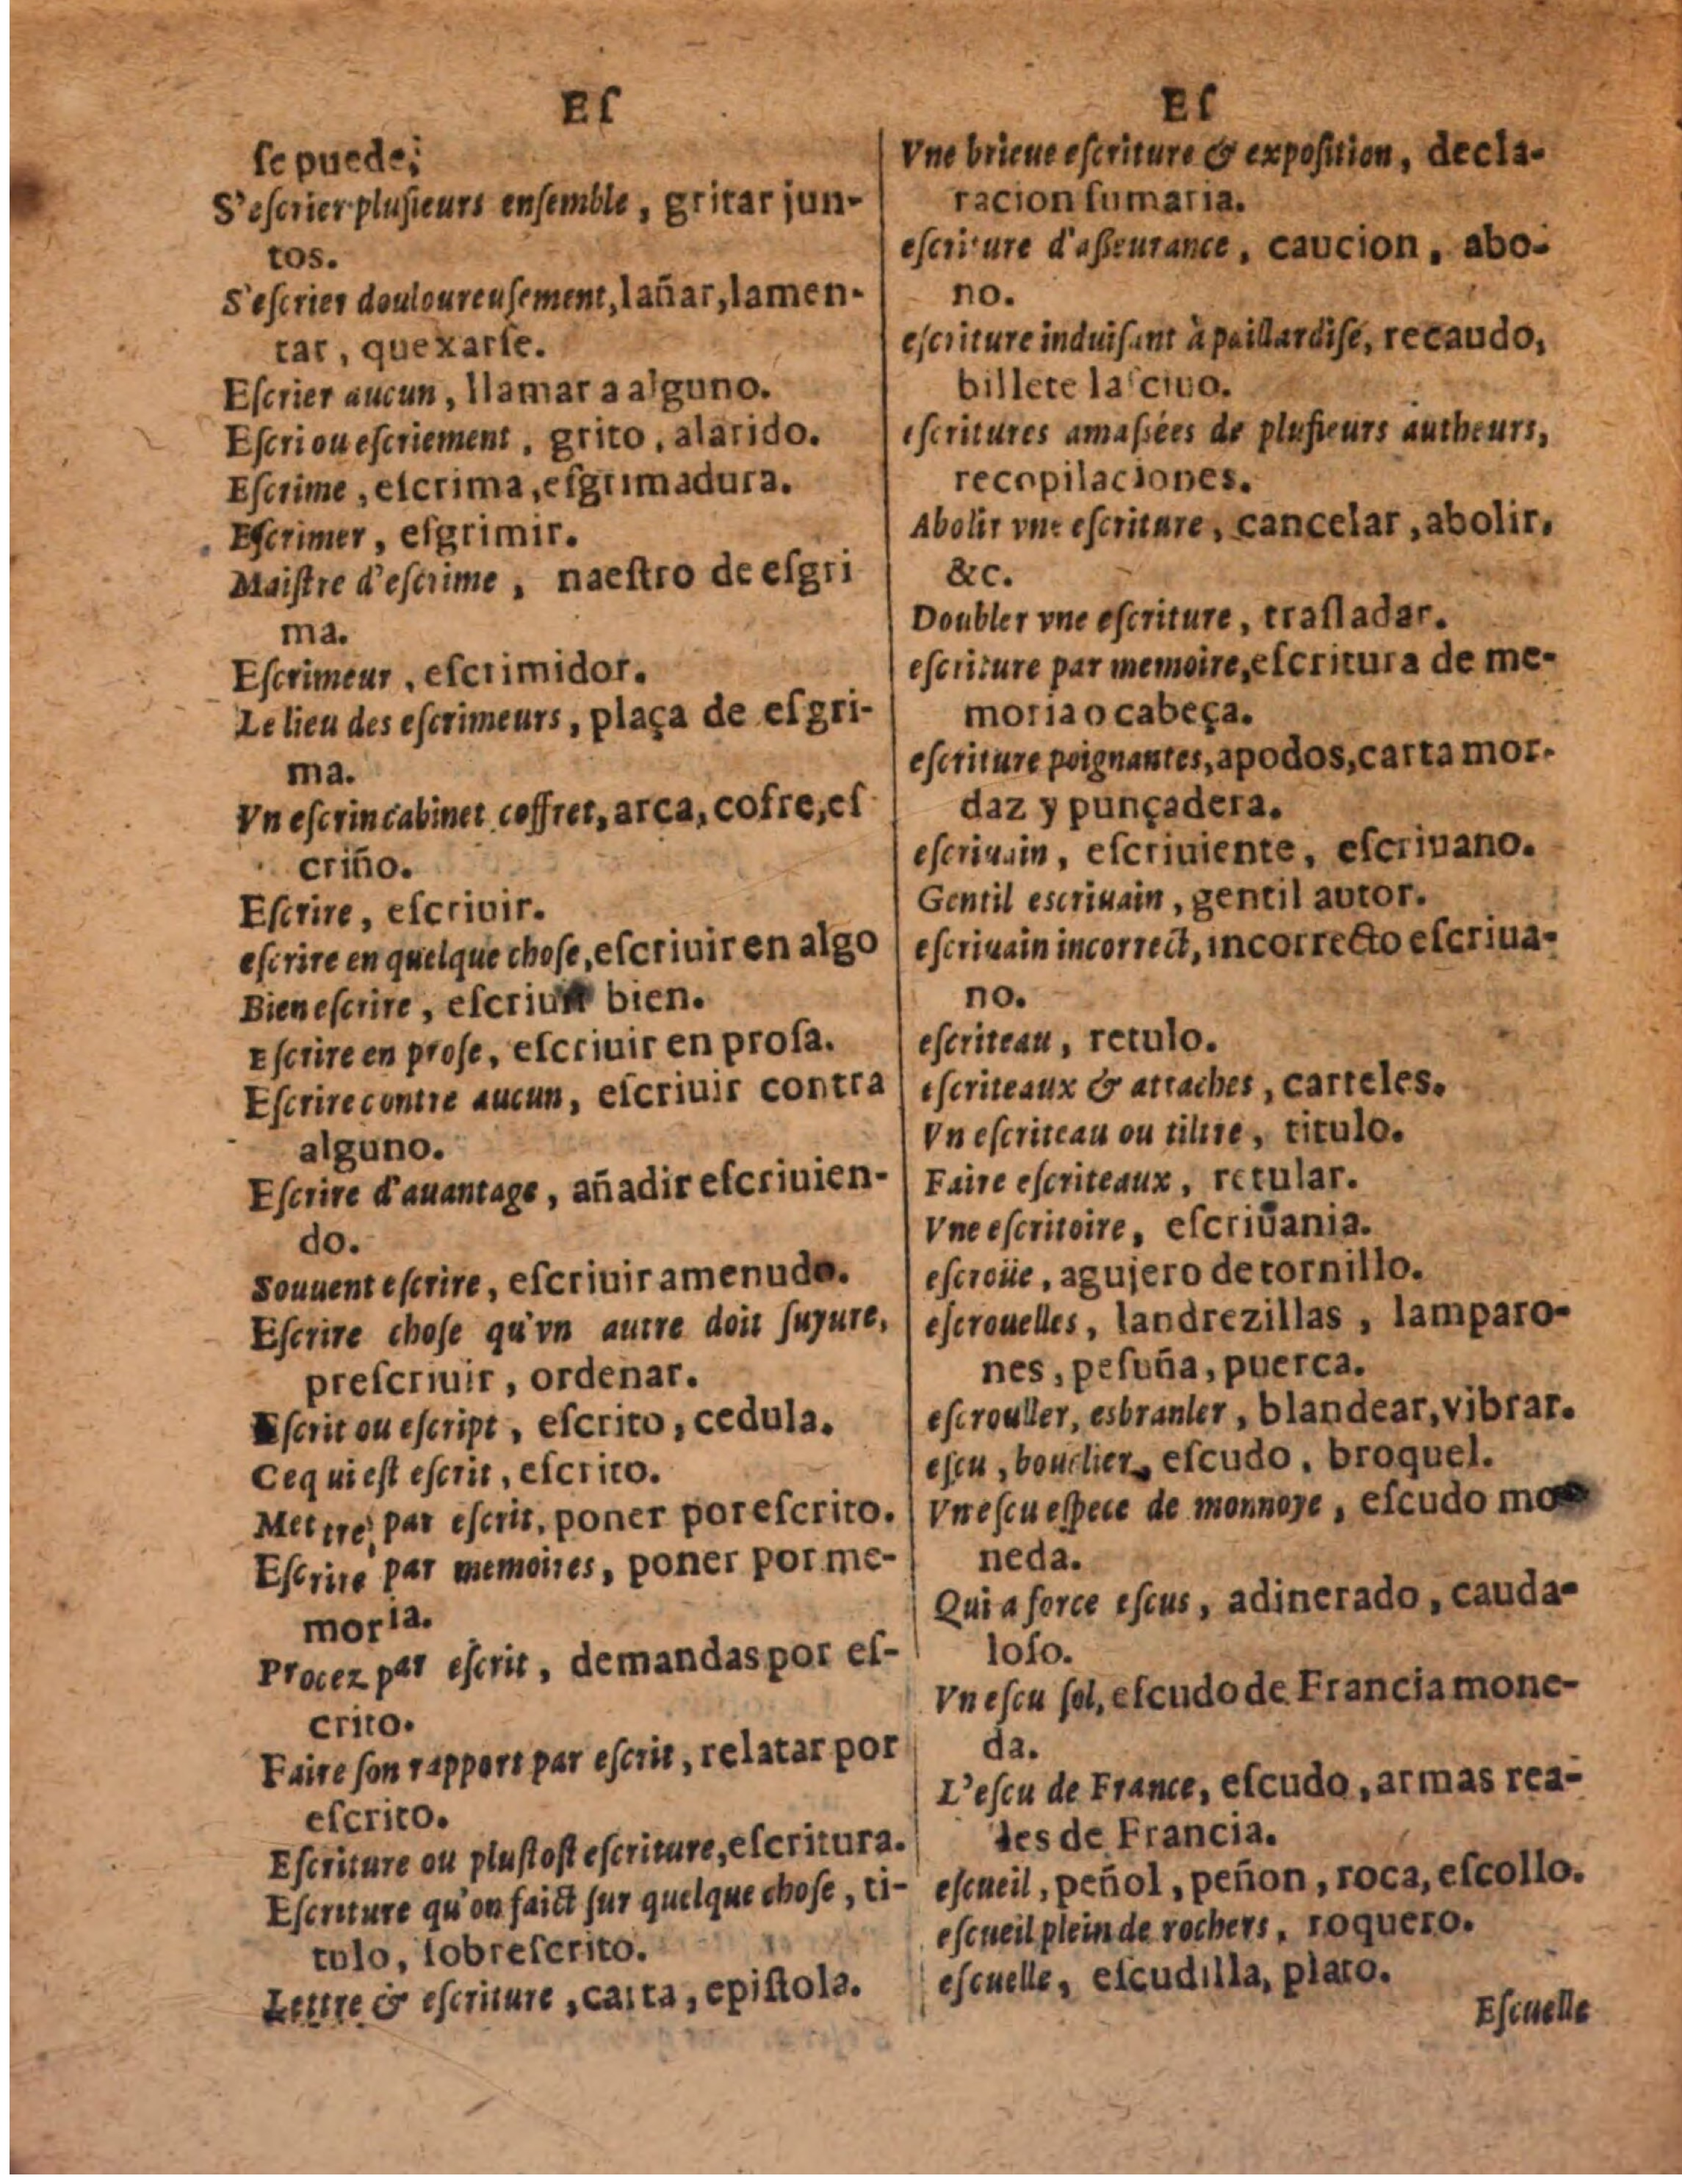 Eſ
ſe puede;
S'eſcrier pluſieurs enſemble, gritar jun-
tos.
S'eſcrier douloureuſement, lañar, lamen-
tar, quexarſe.
Eſcrier aucun, llamar a alguno.
Eſcri ou eſcriement, grito, alarido.
Eſcrime, eſcrima, eſgrimadura.
Eſcrimer, eſgrimir.
Maiſtre d'eſcrime, naeſtro de eſgri
ma.
Eſcrimeur, eſcrimidor.
Le lieu des eſcrimeurs, plaça de eſgri-
ma.
Vn eſcrin cabinet coffret, arca, cofre, eſ
criño.
Eſcrire, eſcriuir.
eſcrire en quelque choſe, eſcriuir en algo
Bien eſcrire, eſcriuir bien.
Eſcrire en proſe, eſcriuir en proſa.
Eſcrire contre aucun, eſcriuir contra
alguno.
Eſcrire d'auantage, añadir eſcriuien-
do.
Souuent eſcrire, eſcriuir amenudo.
Eſcrire choſe qu'vn autre doit ſuyure,
preſcriuir, ordenar.
Eſcrit ou eſcript, eſcrito, cedula.
Ce qui eſt eſcrit, eſcrito.
Mettre par eſcrit, poner por eſcrito.
Eſcrire par memoires, poner por me-
moria.
Procez par eſcrit, demandas por eſ-
crito.
Faire ſon rapport par eſcrit, relatar por
eſcrito.
Eſcriture ou pluſtoſt eſcriture, eſcritura.
Eſcriture qu'on faict ſur quelque choſe, ti-
tulo, ſobreſcrito.
Lettre & eſcriture, carta, epiſtola.
Eſ
Vne brieue eſcriture & expoſition, decla-
racion ſumaria.
eſcriture d'aſſeurance, caucion, abo-
no.
eſcriture induiſant à paillardiſe, recaudo,
billete laſciuo.
eſcritures amaſſées de pluſieurs autheurs,
recopilaciones.
Abolir vne eſcriture, cancelar, abolir,
&c.
Doubler vne eſcriture, traſladar.
eſcriture par memoire, eſcritura de me-
moria o cabeça.
eſcriture poignantes, apodos, carta mor-
daz y punçadera.
eſcriuain, eſcriuiente, eſcriuano.
Gentil escriuain, gentil autor.
eſcriuain incorrect, incorrecto eſcriua-
no.
eſcriteau, retulo.
eſcriteaux & attaches, carteles.
Vn eſcriteau ou tiltre, titulo.
Faire eſcriteaux, retular.
Vne eſcritoire, eſcriuania.
eſcroüe, agujero de tornillo.
eſcrouelles, landrezillas, lamparo-
nes, peſuña, puerca.
eſcrouller, esbranler, blandear, vibrar.
eſcu, bouclier, eſcudo, broquel.
Vn eſcu eſpece de monnoye, eſcudo mo
neda.
Qui a force eſcus, adinerado, cauda-
loſo.
Vn eſcu ſol, eſcudo de Francia mone-
da.
L'eſcu de France, eſcudo, armas rea-
les de Francia.
eſcueil, peñol, peñon, roca, eſcollo.
eſcueil plein de rochers, roquero.
eſcuelle, eſcudilla, plato.
Eſcuelle